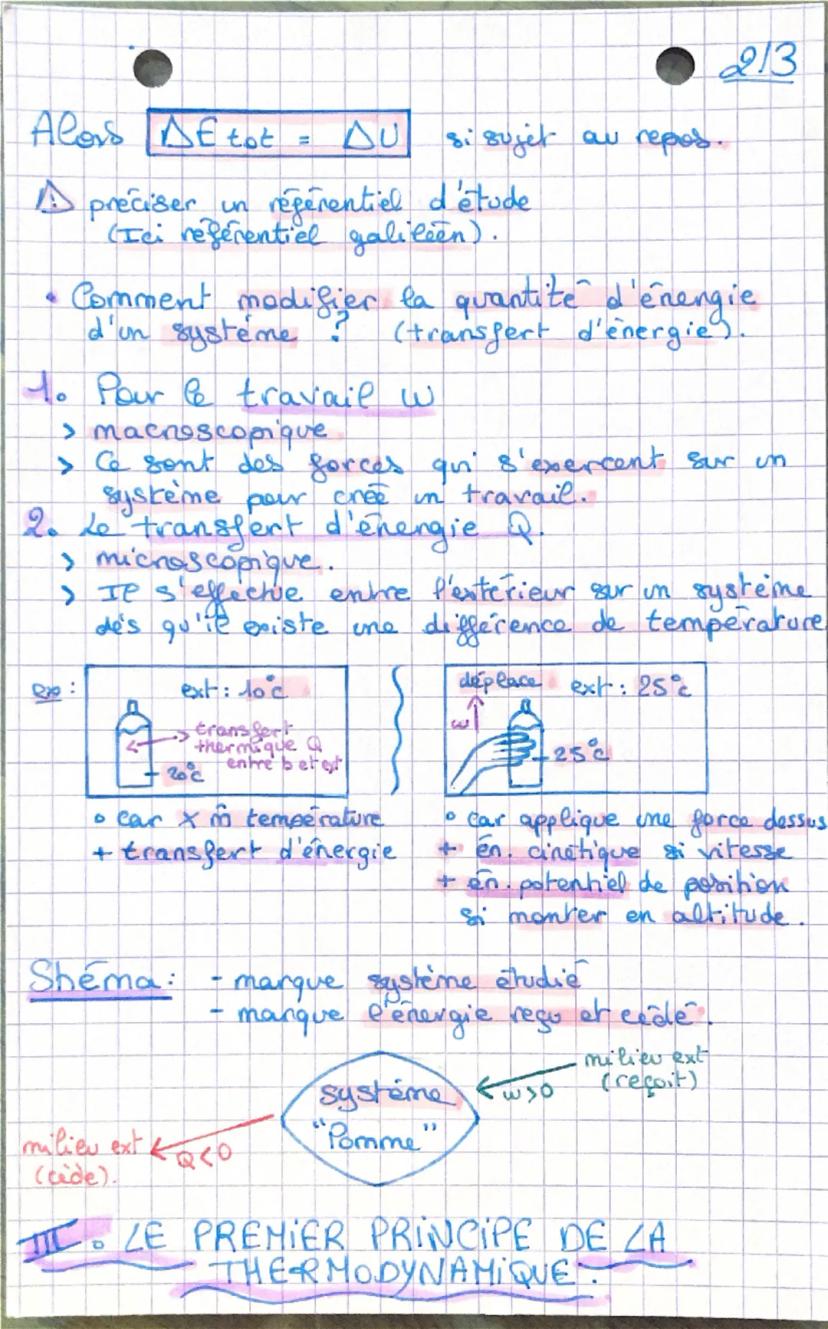 2/3
Alors ΔE tot = ΔU si sujet au repos.
⚠ préciser un référentiel d'étude
(Ici référentiel galiléen).
• Comment modifier la quantité d'énergie
d'un système ? (transfert d'énergie).
1. Pour le travail W
> macroscopique
> Ce sont des forces qui s'exercent sur un
système pour créé un travail.
2. Le transfert d'énergie Q.
> microscopique.
> Il s'effectue entre l'extérieur sur un système
dés qu'il existe une différence de température
ex :
ext : 10°c
transfert
thermique Q
entre b et ext
20°c
déplace ext : 25°c
w
25°c
° car × m̂ température
+ transfert d'énergie
° car applique une force dessus
+ én. cinétique si vitesse
+ én. potentiel de position
si monter en altitude.
Shéma : - marque système étudié
- marque l'énergie reçu et cédé.
milieu ext
(reçoit)
W>0
système
"Pomme"
milieu ext
(cède).
Q<0
III. LE PREMIER PRINCIPE DE LA
THERMODYNAMIQUE.